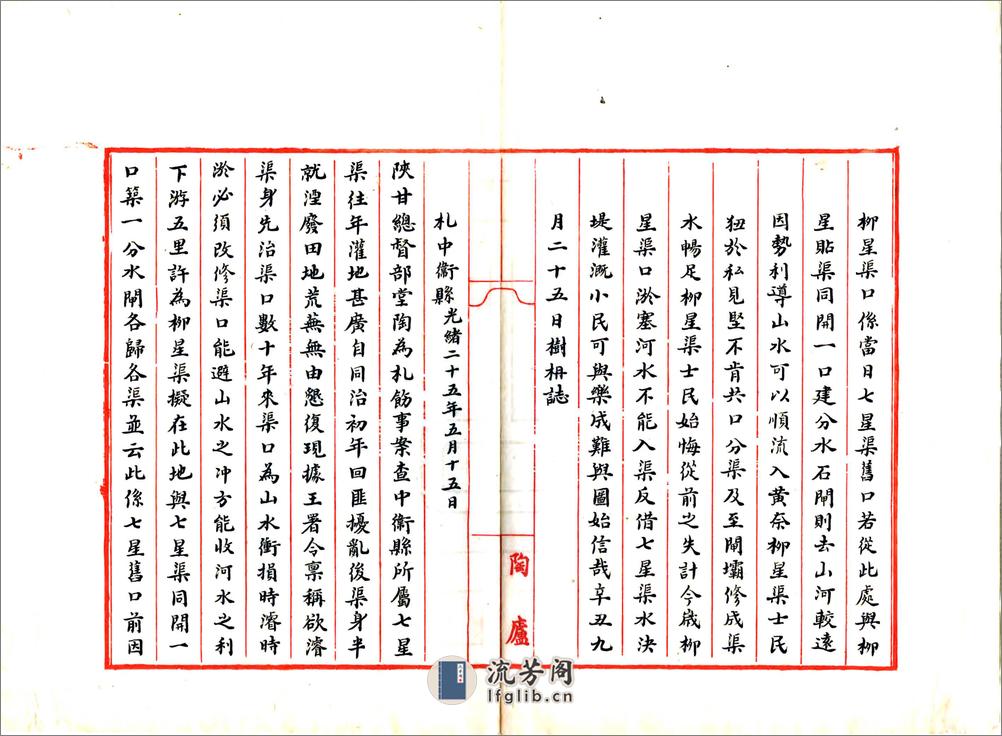 柳星渠口係當日七星渠舊口若從此處與柳
星貼渠同開一口建分水石閘則去山河較遠
因勢利導山水可以順流入黃奈柳星渠士民
狃於私見堅不肯共口分渠及至閘壩修成渠
水暢足柳星渠士民始悔從前之失計今歲柳
星渠口淤塞河水不能入渠反借七星渠水決
堤灌溉小民可與樂成難與圖始信哉辛丑九
月二十五日樹枬誌
陶廬
札中衛縣光緒二十五年五月十五日
陝甘總督部堂陶為札飭事案查中衛縣所屬七星
渠往年灌地甚廣自同治初年回匪擾亂後渠身半
就湮廢田地荒蕪無由墾復現據王署令稟稱欲濬
渠身先治渠口數十年來渠口為山水衝損時濬時
淤必須改修渠口能避山水之冲方能收河水之利
下游五里許為柳星渠擬在此地與七星渠同開一
口築一分水閘各歸各渠並云此係七星舊口前因
流芳阁
lfglib.cn